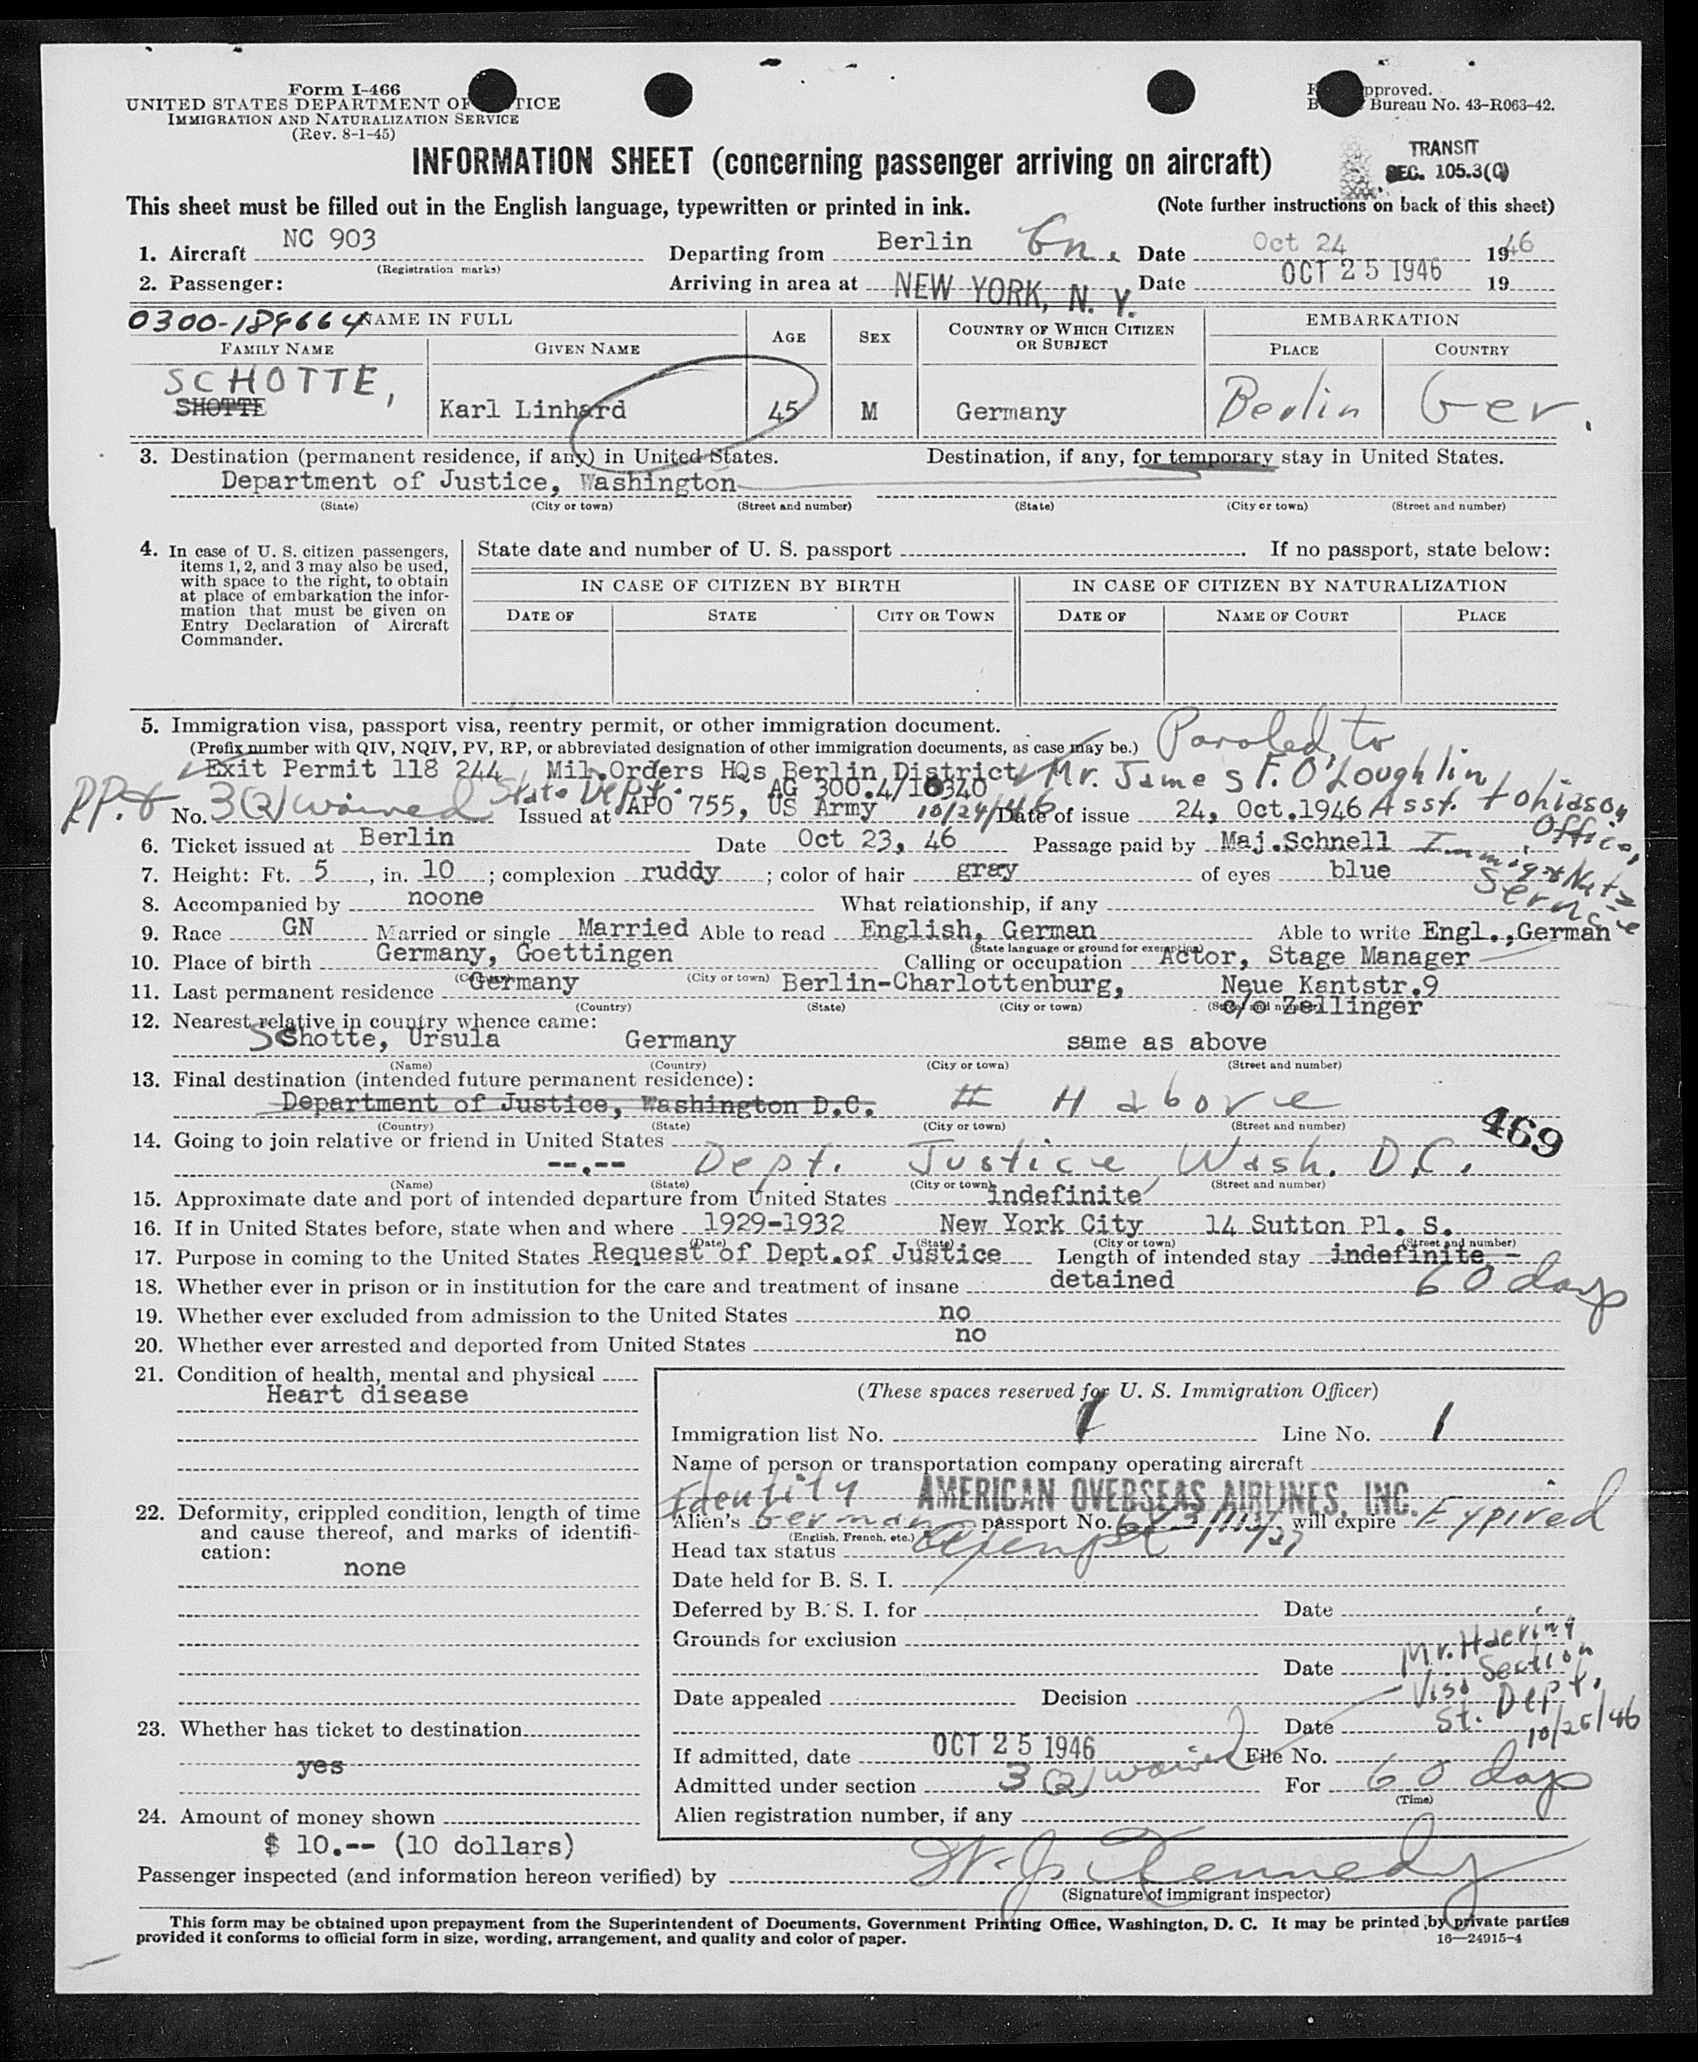 Form I-466
UNITED STATES DEPARTMENT OF JUSTICE
IMMIGRATION AND NATURALIZATION SERVICE
(Rev. 8-1-45)
pproved.
Bureau No. 43-R063-42.
TRANSIT
SEC. 105.3(C)
INFORMATION SHEET (concerning passenger arriving on aircraft)
This sheet must be filled out in the English language, typewritten or printed in ink. (Note further instructions on back of this sheet)
1. Aircraft NC 903 Departing from Berlin Gn. Date Oct 24 1946
(Registration marks)
2. Passenger: Arriving in area at NEW YORK, N. Y. Date OCT 25 1946 19
0300-189664 NAME IN FULL AGE SEX COUNTRY OF WHICH CITIZEN OR SUBJECT EMBARKATION
FAMILY NAME GIVEN NAME PLACE COUNTRY
SCHOTTE,
SHOTTE Karl Linhard 45 M Germany Berlin Ger.
3. Destination (permanent residence, if any) in United States. Destination, if any, for temporary stay in United States.
Department of Justice, Washington
(State) (City or town) (Street and number) (State) (City or town) (Street and number)
4. In case of U. S. citizen passengers, items 1, 2, and 3 may also be used, with space to the right, to obtain at place of embarkation the information that must be given on Entry Declaration of Aircraft Commander.
State date and number of U. S. passport . If no passport, state below:
IN CASE OF CITIZEN BY BIRTH IN CASE OF CITIZEN BY NATURALIZATION
DATE OF STATE CITY OR TOWN DATE OF NAME OF COURT PLACE
5. Immigration visa, passport visa, reentry permit, or other immigration document.
(Prefix number with QIV, NQIV, PV, RP, or abbreviated designation of other immigration documents, as case may be.) Paroled to
Exit Permit 118 244 Mil.Orders HQs Berlin District Mr. James F. O'Loughlin
AG 300.4/10340
PP. & No. 3(2) waived State Dept. Issued at APO 755, US Army 10/24/46 Date of issue 24, Oct.1946 Asst.
Office,
6. Ticket issued at Berlin Date Oct 23, 46 Passage paid by Maj.Schnell Immig & Natz
7. Height: Ft. 5 , in. 10 ; complexion ruddy ; color of hair gray of eyes blue Service
8. Accompanied by noone What relationship, if any
9. Race GN Married or single Married Able to read English, German Able to write Engl.,German
(State language or ground for exemption)
10. Place of birth Germany, Goettingen Calling or occupation Actor, Stage Manager
(Country) (City or town)
11. Last permanent residence Germany Berlin-Charlottenburg, Neue Kantstr.9
(Country) (State) (City or town) (Street and number) c/o Zellinger
12. Nearest relative in country whence came:
Schotte, Ursula Germany same as above
(Name) (Country) (City or town) (Street and number)
13. Final destination (intended future permanent residence):
Department of Justice, Washington D.C. above
(Country) (State) (City or town) (Street and number)
469
14. Going to join relative or friend in United States
--.-- Dept. Justice Wash. D.C.
(Name) (State) (City or town) (Street and number)
15. Approximate date and port of intended departure from United States indefinite
16. If in United States before, state when and where 1929-1932 New York City 14 Sutton Pl. S.
(Date) (State) (City or town) (Street and number)
17. Purpose in coming to the United States Request of Dept.of Justice Length of intended stay indefinite -
60 days
18. Whether ever in prison or in institution for the care and treatment of insane detained
19. Whether ever excluded from admission to the United States no
20. Whether ever arrested and deported from United States no
21. Condition of health, mental and physical
Heart disease
22. Deformity, crippled condition, length of time and cause thereof, and marks of identification:
none
23. Whether has ticket to destination
yes
24. Amount of money shown
$ 10.-- (10 dollars)
(These spaces reserved for U. S. Immigration Officer)
Immigration list No. 1 Line No. 1
Name of person or transportation company operating aircraft
Identity AMERICAN OVERSEAS AIRLINES, INC.
Alien's German passport No. will expire Expired
(English, French, etc.)
Head tax status Exempt
Date held for B. S. I.
Deferred by B. S. I. for Date
Grounds for exclusion
Date Mr. Haering
Visa Section
Date appealed Decision St. Dept.
Date 10/25/46
If admitted, date OCT 25 1946 File No.
Admitted under section 3(2) waived For 60 days
(Time)
Alien registration number, if any
Passenger inspected (and information hereon verified) by W. J. Kennedy
(Signature of immigrant inspector)
This form may be obtained upon prepayment from the Superintendent of Documents, Government Printing Office, Washington, D. C. It may be printed by private parties
provided it conforms to official form in size, wording, arrangement, and quality and color of paper. 16—24915-4